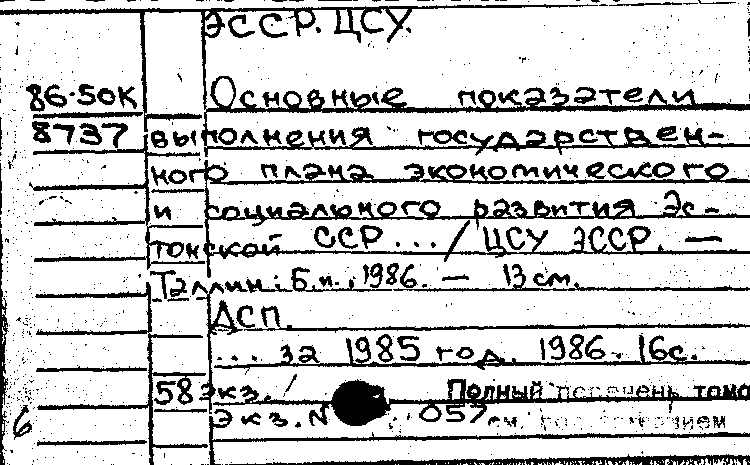 ЭССР. ЦСУ.
86-50К Основные показатели
8737 выполнения государствен-
ного плана экономического
и социального развития Эс-
тонской ССР ... / ЦСУ ЭССР. —
Таллин : Б.и., 1986. — 13 см.
ДСП.
... за 1985 год. 1986. 16с.
58 экз. / Полный перечень томо
6 Экз. N 057